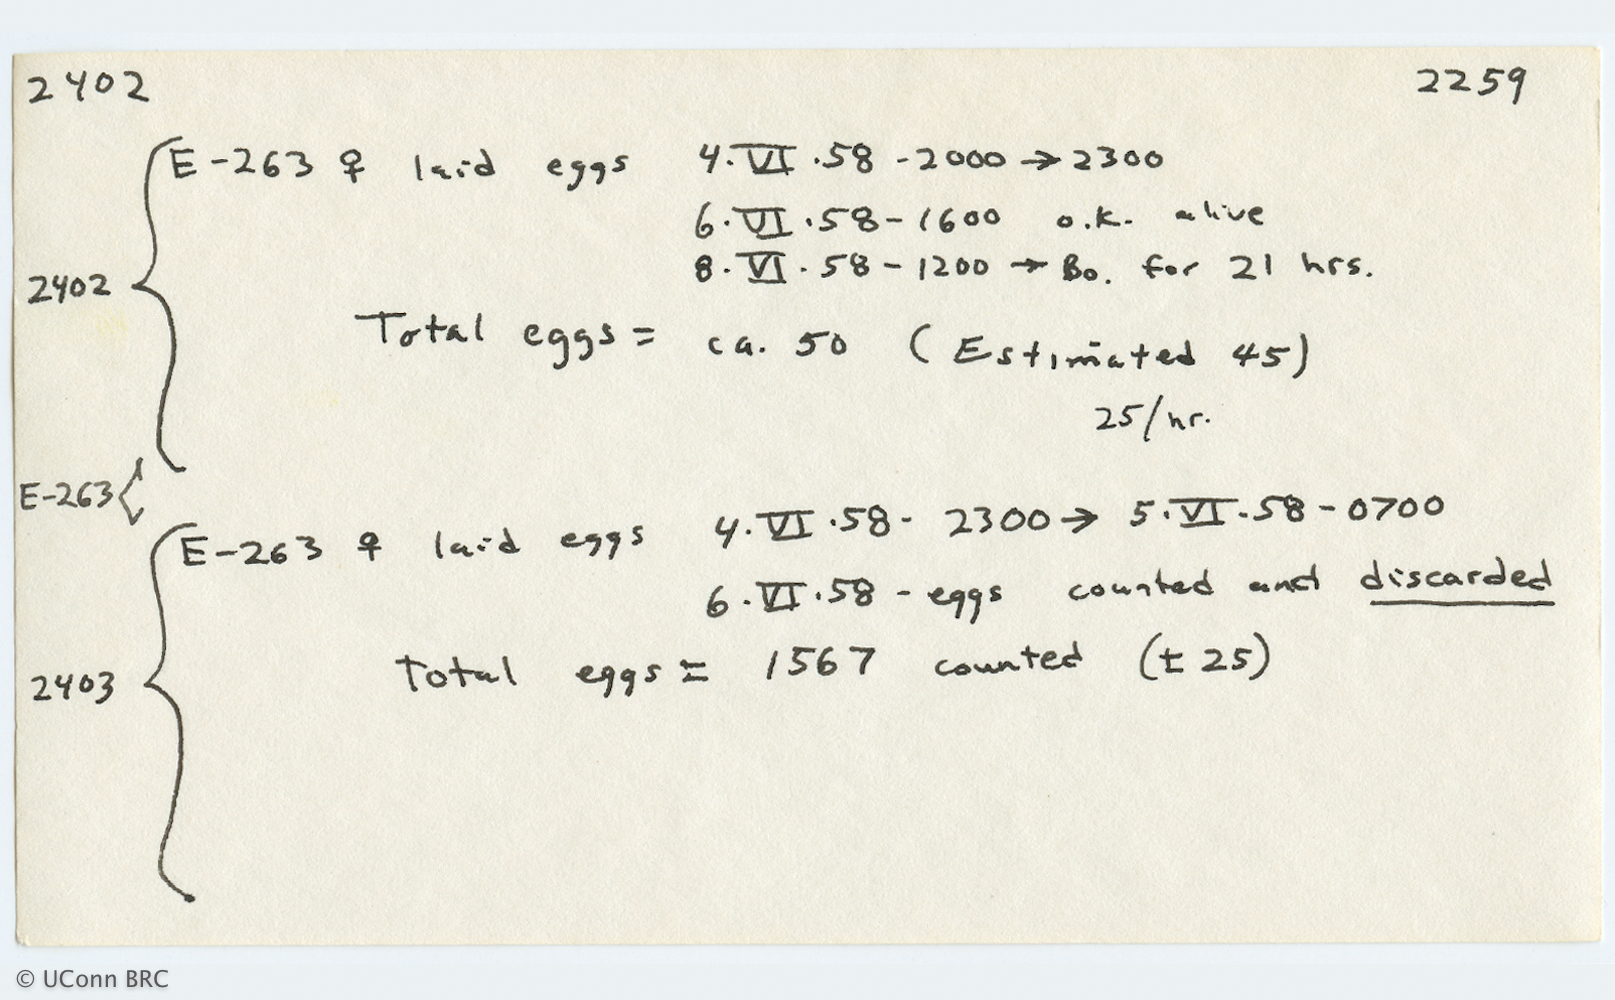 2402 2259
E-263 ♀ laid eggs 4.VI.58-2000→2300
6.VI.58-1600 o.k. alive
2402 8.VI.58-1200→Bo. for 21 hrs.
Total eggs = ca. 50 (Estimated 45)
25/hr.
E-263
E-263 ♀ laid eggs 4.VI.58-2300→5.VI.58-0700
6.VI.58-eggs counted and discarded
2403 Total eggs = 1567 counted (± 25)
© UConn BRC